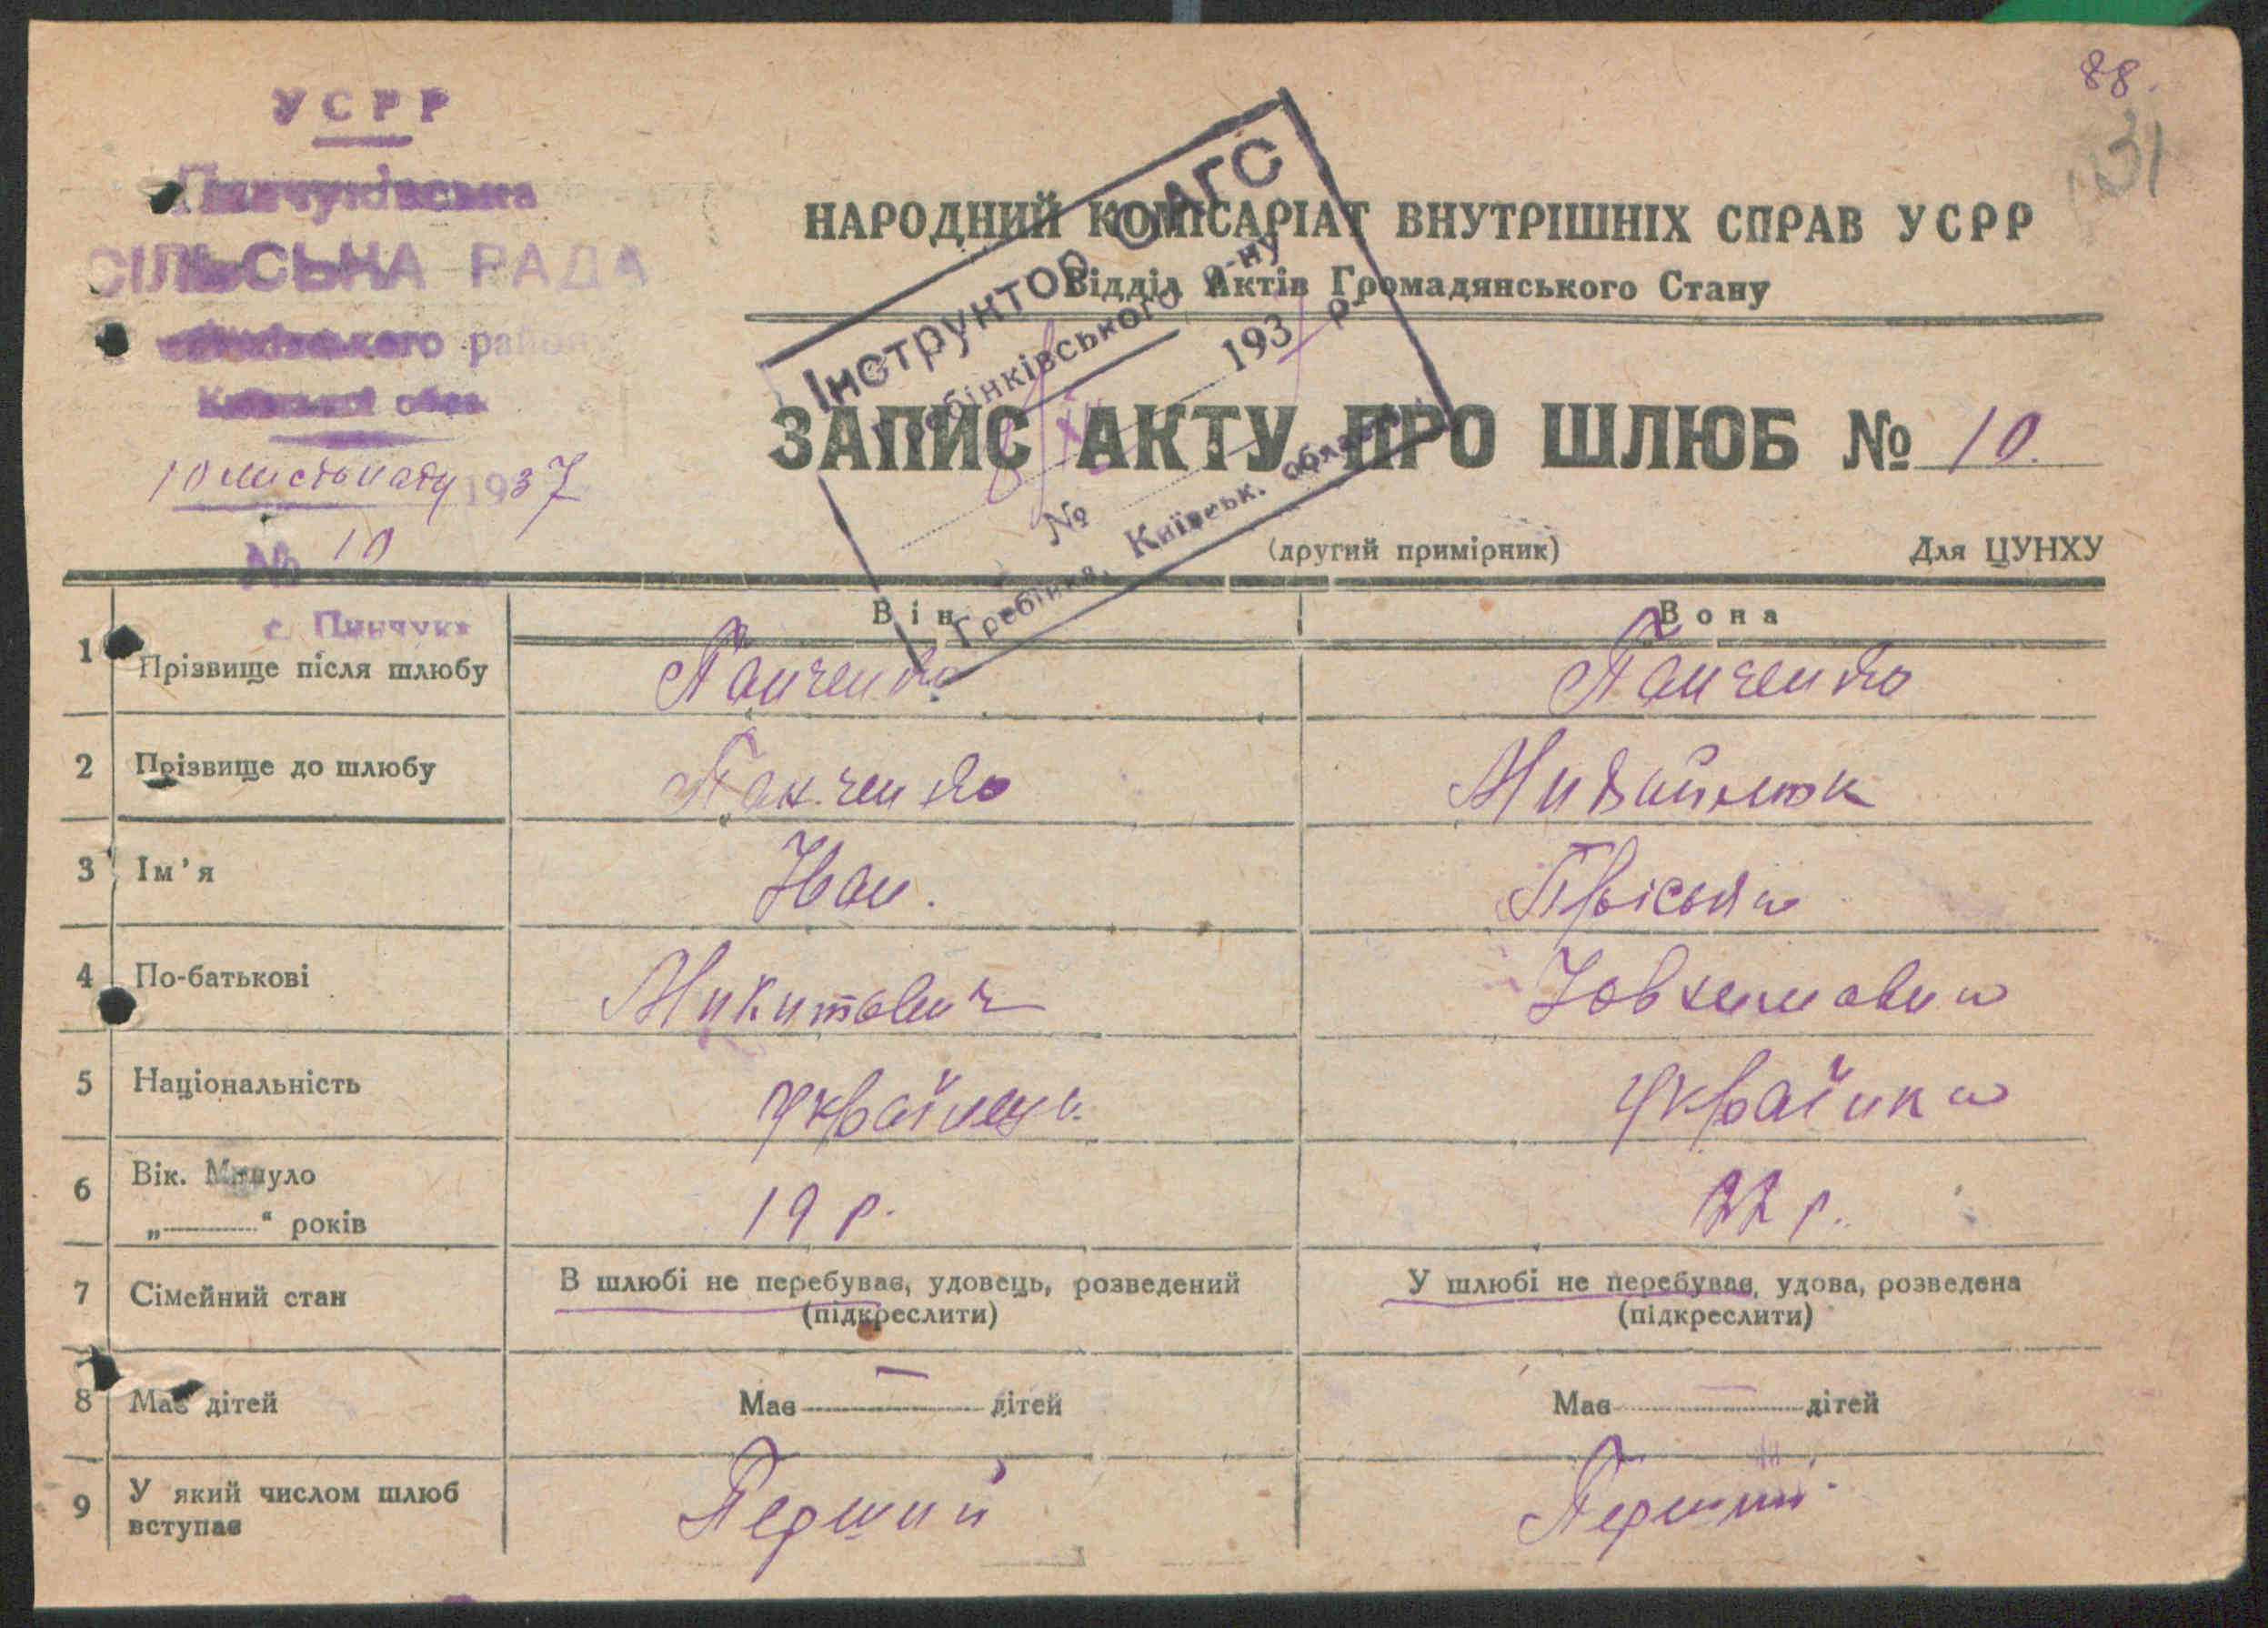 88.
31
УСРР
Пинчуківська
СІЛЬСЬКА РАДА
району
Київської обл.
10 листопаду 1937
№ 10
с. Пинчуки
Інструктор ОАГС
Гребінківського р-ну
8/XII 1937 р.
№
Гребінка, Київськ. области
НАРОДНИЙ КОМІСАРІАТ ВНУТРІШНІХ СПРАВ УСРР
Відділ Актів Громадянського Стану
ЗАПИС АКТУ ПРО ШЛЮБ № 10.
(другий примірник) Для ЦУНХУ
Він Вона
1 Прізвище після шлюбу Панченко Панченко
2 Прізвище до шлюбу Панченко Михайлюк
3 Ім'я Іван. Пріська
4 По-батькові Микитович Йовхимовна
5 Національність Українець Українка
6 Вік. Минуло
„ “ років 19 р. 22 р.
7 Сімейний стан В шлюбі не перебуває, удовець, розведений У шлюбі не перебуває, удова, розведена
(підкреслити) (підкреслити)
8 Має дітей Має — дітей Має — дітей
9 У який числом шлюб
вступає Перший Перший